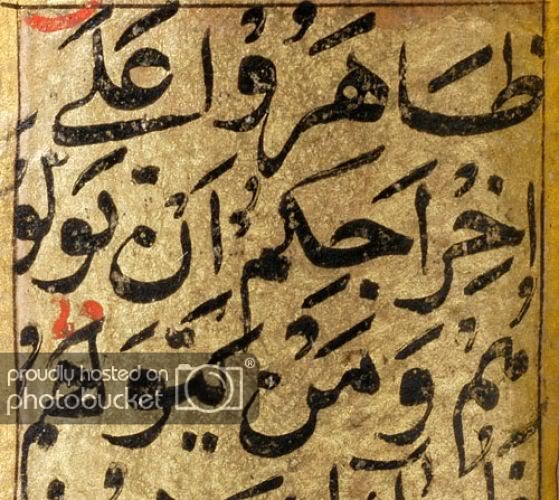 ظَاهَرُوْا عَلَى
اِخْرَاجِكُمْ اَنْ تَوَلَّوْ
هُمْ وَمَنْ يَتَوَلَّهُمْ
proudly hosted on
photobucket